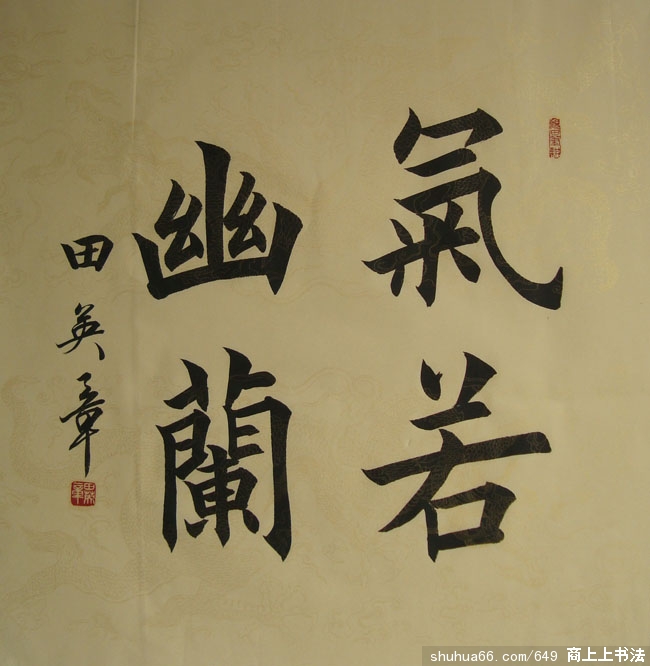 氣若
幽蘭
田英章
shuhua66.com/649 商上上书法